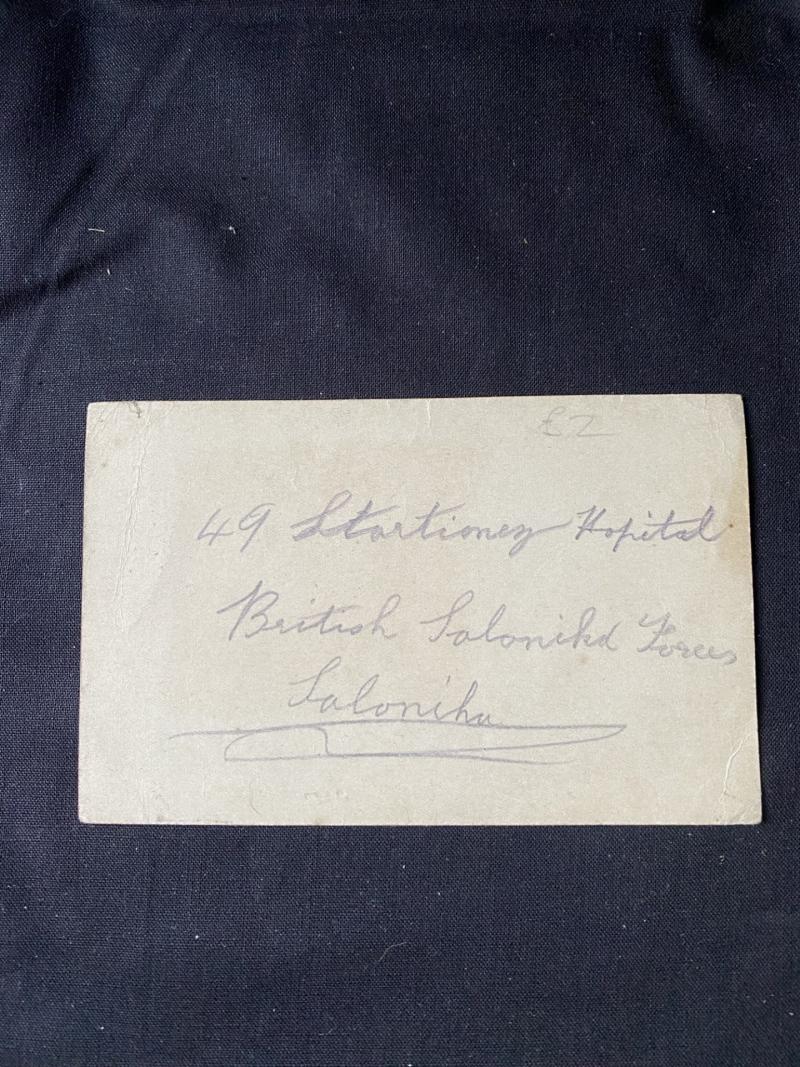 £2
49 Startioney Hopital
British Salonika Forces
Salonika